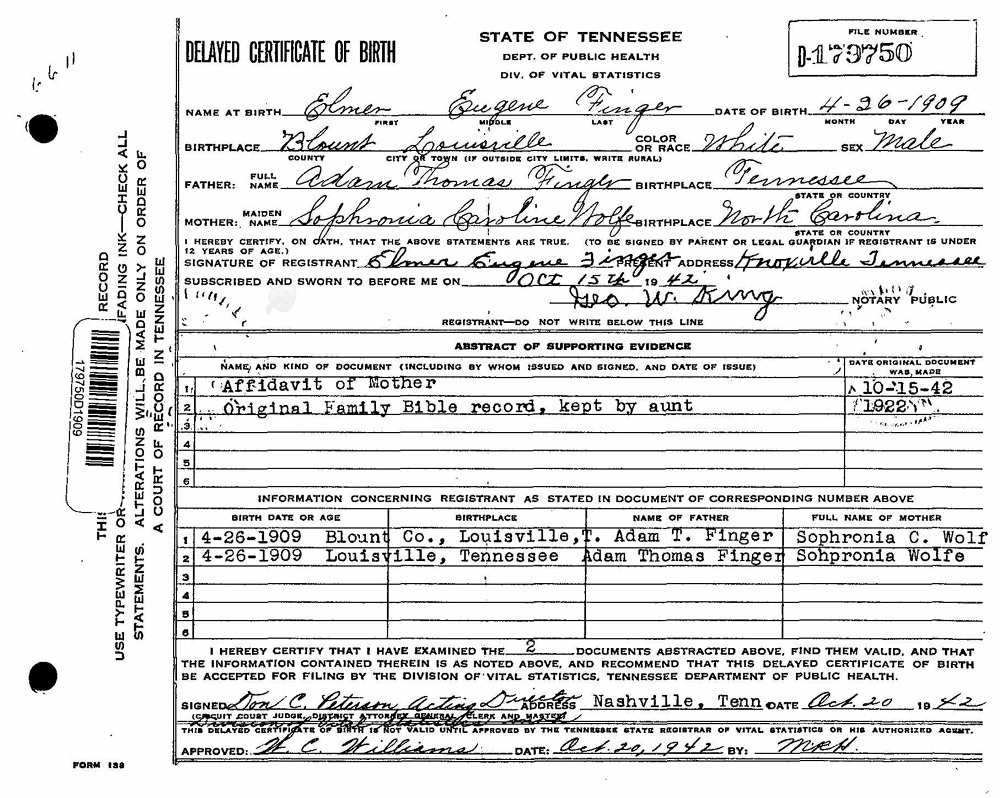 6 6 11
DELAYED CERTIFICATE OF BIRTH
STATE OF TENNESSEE
DEPT. OF PUBLIC HEALTH
DIV. OF VITAL STATISTICS
FILE NUMBER
D-179750
NAME AT BIRTH Elmer Eugene Finger DATE OF BIRTH 4-26-1909
FIRST MIDDLE LAST MONTH DAY YEAR
BIRTHPLACE Blount Louisville COLOR OR RACE White SEX Male
COUNTY CITY OR TOWN (IF OUTSIDE CITY LIMITS, WRITE RURAL)
FATHER: FULL NAME Adam Thomas Finger BIRTHPLACE Tennessee
STATE OR COUNTRY
MOTHER: MAIDEN NAME Sophronia Caroline Wolfe BIRTHPLACE North Carolina
STATE OR COUNTRY
I HEREBY CERTIFY, ON OATH, THAT THE ABOVE STATEMENTS ARE TRUE. (TO BE SIGNED BY PARENT OR LEGAL GUARDIAN IF REGISTRANT IS UNDER
12 YEARS OF AGE.)
SIGNATURE OF REGISTRANT Elmer Eugene Finger PRESENT ADDRESS Knoxville Tennessee
SUBSCRIBED AND SWORN TO BEFORE ME ON Oct 15th 1942
Geo. W. King NOTARY PUBLIC
REGISTRANT—DO NOT WRITE BELOW THIS LINE
ABSTRACT OF SUPPORTING EVIDENCE
NAME AND KIND OF DOCUMENT (INCLUDING BY WHOM ISSUED AND SIGNED, AND DATE OF ISSUE) DATE ORIGINAL DOCUMENT WAS MADE
1 Affidavit of Mother 10-15-42
2 Original Family Bible record, kept by aunt 1922
3
4
5
6
INFORMATION CONCERNING REGISTRANT AS STATED IN DOCUMENT OF CORRESPONDING NUMBER ABOVE
BIRTH DATE OR AGE BIRTHPLACE NAME OF FATHER FULL NAME OF MOTHER
1 4-26-1909 Blount Co., Louisville,T. Adam T. Finger Sophronia C. Wolf
2 4-26-1909 Louisville, Tennessee Adam Thomas Finger Sohpronia Wolfe
3
4
5
6
I HEREBY CERTIFY THAT I HAVE EXAMINED THE 2 DOCUMENTS ABSTRACTED ABOVE, FIND THEM VALID, AND THAT
THE INFORMATION CONTAINED THEREIN IS AS NOTED ABOVE, AND RECOMMEND THAT THIS DELAYED CERTIFICATE OF BIRTH
BE ACCEPTED FOR FILING BY THE DIVISION OF VITAL STATISTICS, TENNESSEE DEPARTMENT OF PUBLIC HEALTH.
SIGNED Don C. Peterson, Acting Director ADDRESS Nashville, Tenn DATE Oct. 20 1942
(CIRCUIT COURT JUDGE, DISTRICT ATTORNEY GENERAL, CLERK AND MASTER)
Division of Vital Statistics
THIS DELAYED CERTIFICATE OF BIRTH IS NOT VALID UNTIL APPROVED BY THE TENNESSEE STATE REGISTRAR OF VITAL STATISTICS OR HIS AUTHORIZED AGENT.
APPROVED: W. C. Williams DATE: Oct. 20, 1942 BY: MRH.
FORM 138
THIS RECORD
USE TYPEWRITER OR FADING INK—CHECK ALL
STATEMENTS. ALTERATIONS WILL BE MADE ONLY ON ORDER OF
A COURT OF RECORD IN TENNESSEE
179750D1909